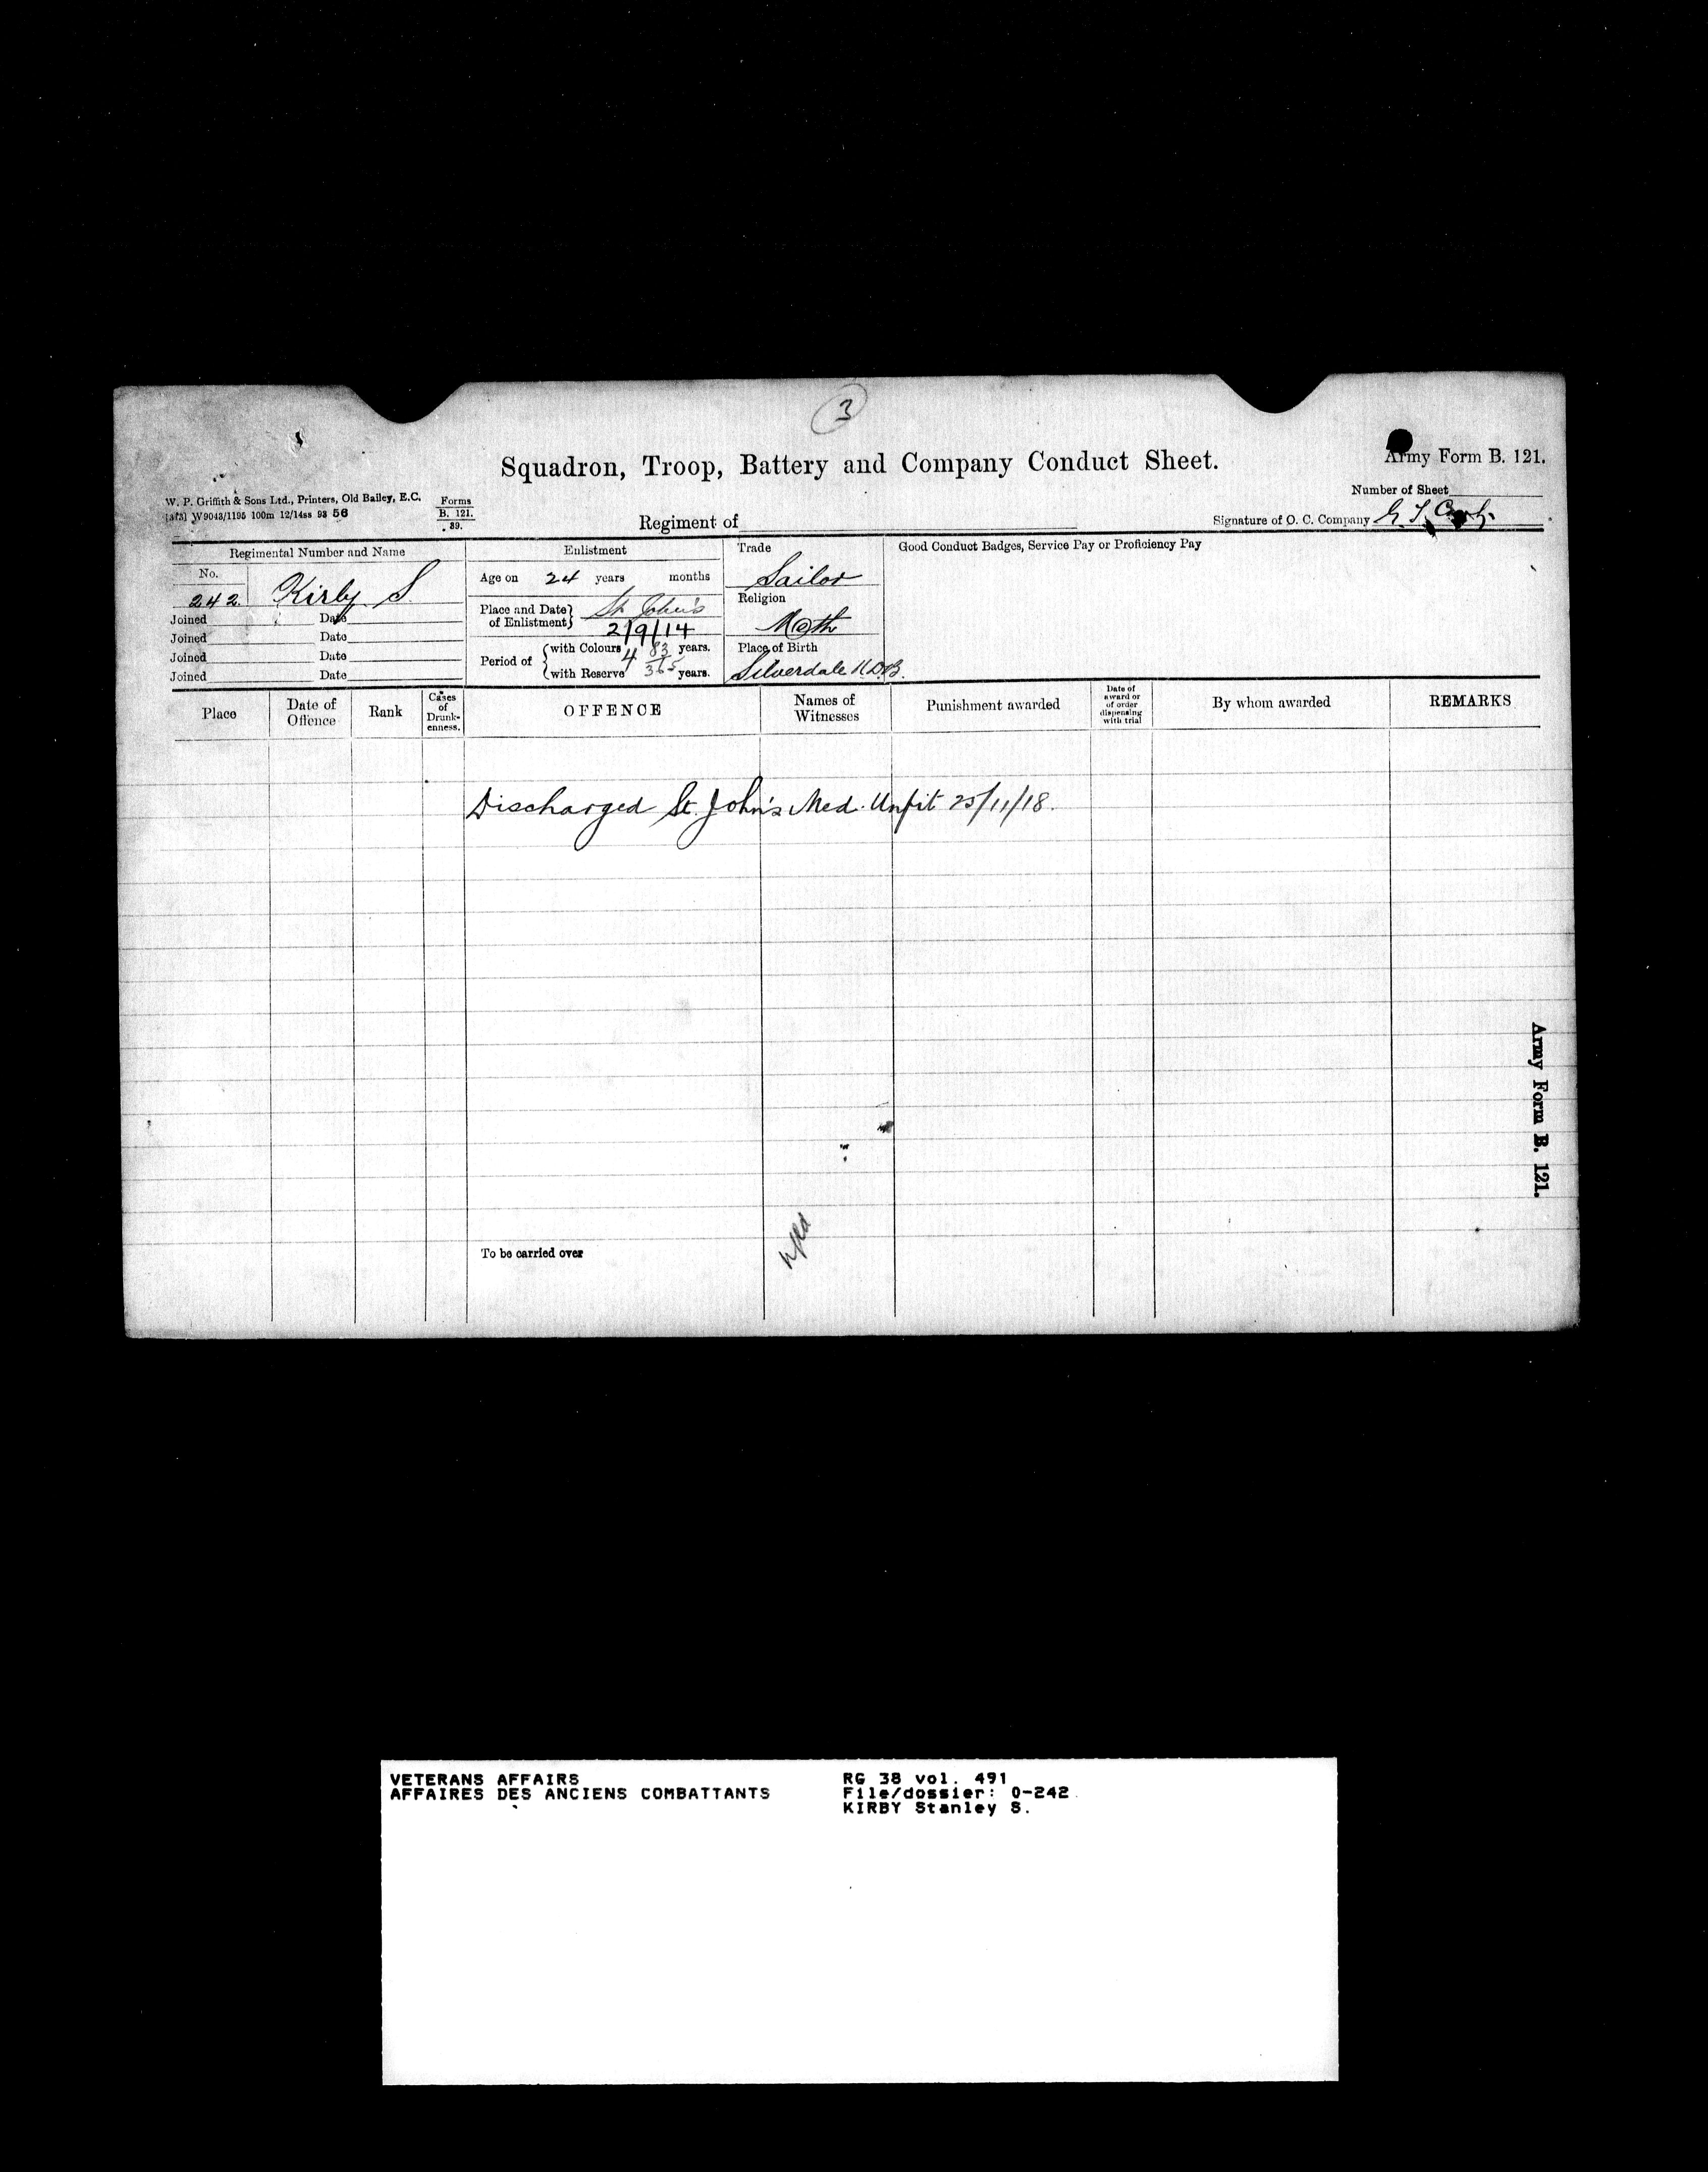 3
Squadron, Troop, Battery and Company Conduct Sheet.
Army Form B. 121.
W. P. Griffith & Sons Ltd., Printers, Old Bailey, E.C.
W9043/1195 100m 12/14ss 93 56
Forms
B. 121.
39.
Number of Sheet
Regiment of
Signature of O. C. Company
Regimental Number and Name
Enlistment
Trade
Good Conduct Badges, Service Pay or Proficiency Pay
No.
242. Kirby S
Age on 24 years months
Sailor
Religion
Joined Date
Place and Date of Enlistment St John's
2/9/14
Meth
Joined Date
Joined Date
Period of with Colours 4 83/365 years.
with Reserve years.
Place of Birth
Joined Date
Silverdale N.D.B.
Place
Date of Offence
Rank
Cases of Drunk-enness.
OFFENCE
Names of Witnesses
Punishment awarded
Date of award or of order dispensing with trial
By whom awarded
REMARKS
Discharged St. John's Med. Unfit 25/11/18.
Army Form B. 121.
To be carried over
Nfld
VETERANS AFFAIRS
AFFAIRES DES ANCIENS COMBATTANTS
RG 38 vol. 491
File/dossier: 0-242
KIRBY Stanley S.